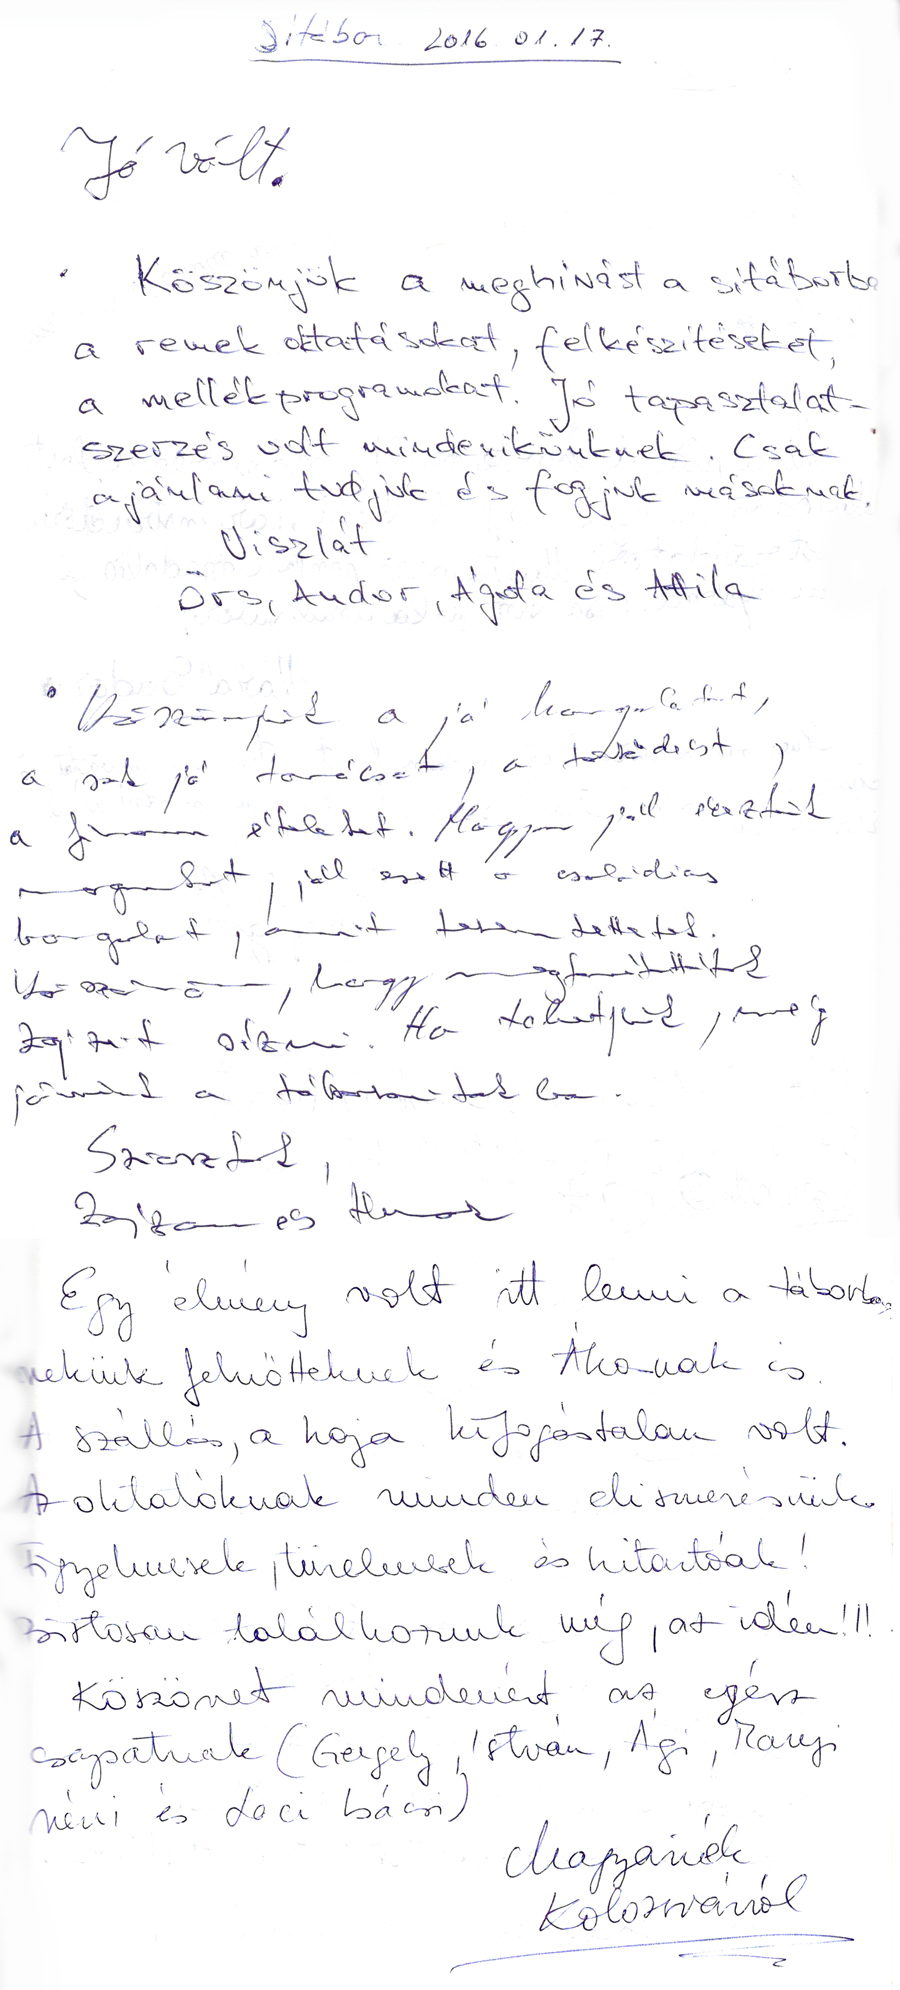 Sítábor 2016 01.17.
Jó vólt.
Köszönjük a meghívást a sítáborba
a remek oktatásokat, felkészítéseket,
a mellékprogramokat. Jó tapasztalat-
szerzés volt mindenikünknek. Csak
ajánlani tudjuk és fogjuk másoknak.
Viszlát
Örs, Andor, Ágota és Attila
Köszönjük a jó hangulatot,
a sok jó tanácsot, a
a finom ételeket. Nagyon jól éreztük
magunkat, jól esett a családias
hangulat, amit teremtettetek.
Köszönöm, hogy megtanítottátok
Zajzont sízni. Ha tehetjük, még
jövünk a táborotokba.
Szeretettel,
Zajzon és Hunor
Egy élmény volt itt lenni a táborba,
nekünk felnőtteknek és Ákosnak is.
A szállás, a kaja kifogástalan volt.
Az oktatóknak minden elismerésünk.
Figyelmesek, türelmesek és kitartóak!
Biztosan találkozunk még, az idén!!!
Köszönet mindenért az egész
csapatnak (Gergely, István, Ági, Manyi
néni és Laci bácsi)
Magyariék
Kolozsvárról